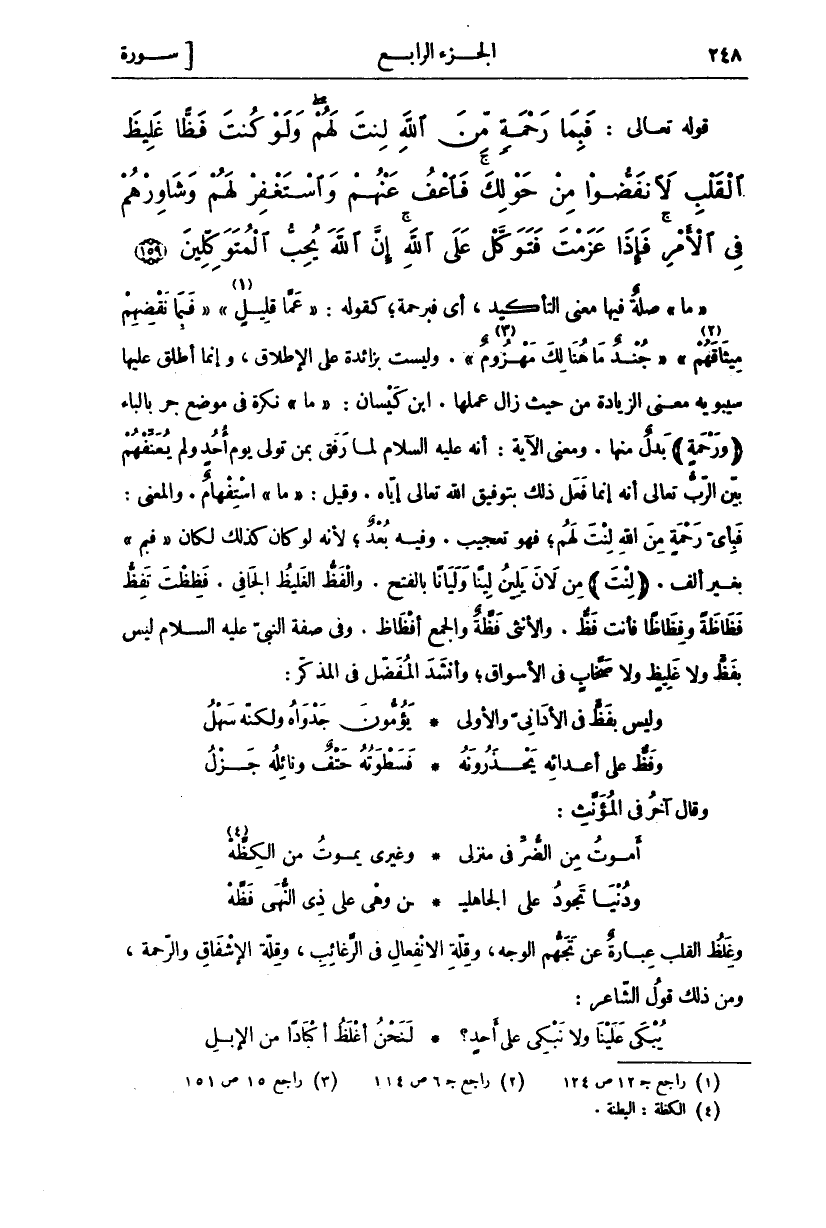 ٢٤٨ الجـزء الرابـع [ ســورة
قوله تعـالى : فَبِمَا رَحْمَةٍ مِّنَ ٱللَّهِ لِنتَ لَهُمْ وَلَوْ كُنتَ فَظًّا غَلِيظَ
ٱلْقَلْبِ لَٱنفَضُّوا۟ مِنْ حَوْلِكَ فَٱعْفُ عَنْهُـمْ وَٱسْتَغْفِرْ لَهُمْ وَشَاوِرْهُمْ
فِى ٱلْأَمْرِ فَإِذَا عَزَمْتَ فَتَوَكَّلْ عَلَى ٱللَّهِ إِنَّ ٱللَّهَ يُحِبُّ ٱلْمُتَوَكِّلِينَ ﴿١٥٩﴾
« ما » صلةٌ فيها معنى التأكيد ، أى فبرحمة ؛ كقوله : « عَمَّا قليـلٍ (١) » « فَبِمَا نَقْضِهِمْ
مِيثَاقَهُمْ (٢) » « جُنْـدٌ مَا هُنَالِكَ مَهْـزُومٌ (٣) » . وليست بزائدة على الإطلاق ، وإنما أطلق عليها
سيبويه معـنى الزيادة من حيث زال عملها . ابن كَيْسان : « ما » نكرة فى موضع جر بالباء
( ورَحْمَةٍ ) بَدلٌ منها . ومعنى الآية : أنه عليه السلام لمـا رَفَق بمن تولى يوم أُحُدٍ ولم يُعَنِّفهم
بيّن الرّبُّ تعالى أنه إنما فَعَل ذلك بتوفيق الله تعالى إيّاه . وقيل : « ما » اسْتِفْهامٌ . والمعنى :
فَبأىّ رَحْمَةٍ مِنَ اللهِ لِنْتَ لَهُم ؛ فهو تعجيب . وفيـه بُعْدٌ ؛ لأنه لو كان كذلك لكان « فبم »
بغـير ألف . ( لِنْتَ ) مِن لاَنَ يَلِينُ لِينًا ولَيَانًا بالفتح . والفَظُّ الغَليظُ الجَافى . فَظِظْتَ تَفِظُّ
فَظَاظَةً وفِظَاظًا فأنت فَظٌّ . والأنثى فَظَّةٌ والجمع أفْظَاظ . وفى صفة النبىّ عليه السـلام ليس
بفَظٍّ ولا غَلِيظٍ ولا صَخَّابٍ فى الأسواق ؛ وأنشَدَ المُفَضّل فى المذكّر :
وليس بفَظٍّ فى الأدَانِىّ والأولى * يَؤُمُّونَ جَدْوَاهُ ولكنّه سَهْلُ
وفَظٌّ على أعـدائه يَحْـذَرُونَهُ * فَسَطْوَتُهُ حَتْفٌ ونائلُه جَـزْلُ
وقال آخرُ فى المُؤَنّثِ :
أموتُ مِن الضُّرّ فى منزلى * وغيرى يمـوتُ من الكِظّهْ (٤)
ودُنْيَـا تَجودُ على الجاهليـ * ـن وهْى على ذِى النُّهَى فَظَّهْ
وغِلَظُ القلب عِبارةٌ عن تَجَهُّم الوجه ، وقِلّةِ الانْفِعالِ فى الرَّغائبِ ، وقِلّة الإشْفَاق والرّحمة ،
ومن ذلك قولُ الشّاعر :
يُبْكَى عَلَيْنَا ولا نَبْكِى على أَحدٍ ؟ * لَنَحْنُ أَغْلَظُ أكْبَادًا من الإبـلِ
(١) راجع جـ ١٢ ص ١٢٤ (٢) راجع جـ ٦ ص ١١٤ (٣) راجع ١٥ ص ١٥١
(٤) الكظة : البطنة .